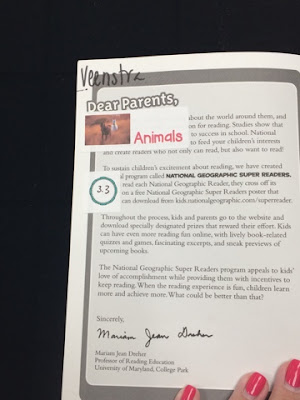 Veenstra
Dear Parents,
about the world around them, and
on for reading. Studies show that
to success in school. National
Animals
to feed your children's interests
and create readers who not only can read, but also want to read!
To sustain children's excitement about reading, we have created
al program called NATIONAL GEOGRAPHIC SUPER READERS.
read each National Geographic Reader, they cross off its
3.3
on a free National Geographic Super Readers poster that
can download from kids.nationalgeographic.com/superreader.
Throughout the process, kids and parents go to the website and
download specially designated prizes that reward their effort. Kids
can have even more reading fun online, with lively book-related
quizzes and games, fascinating excerpts, and sneak previews of
upcoming books.
The National Geographic Super Readers program appeals to kids'
love of accomplishment while providing them with incentives to
keep reading. When the reading experience is fun, children learn
more and achieve more. What could be better than that?
Sincerely,
Mariam Jean Dreher
Mariam Jean Dreher
Professor of Reading Education
University of Maryland, College Park